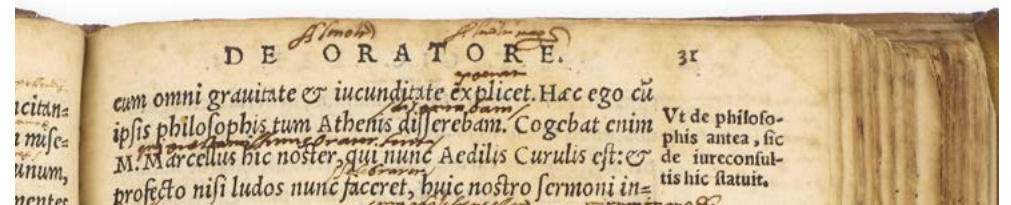 DE ORATORE. 31
cum omni grauitate & iucunditate explicet. Hæc ego cū
ipſis philoſophis tum Athenis diſſerebam. Cogebat enim
M. Marcellus hic noſter, qui nunc Aedilis Curulis eſt: &
profecto niſi ludos nunc faceret, huic noſtro ſermoni in=
Vt de philoſo-
phis antea, ſic
de iureconſul-
tis hic ſtatuit.
citan=
miſe=
unum,
mentes